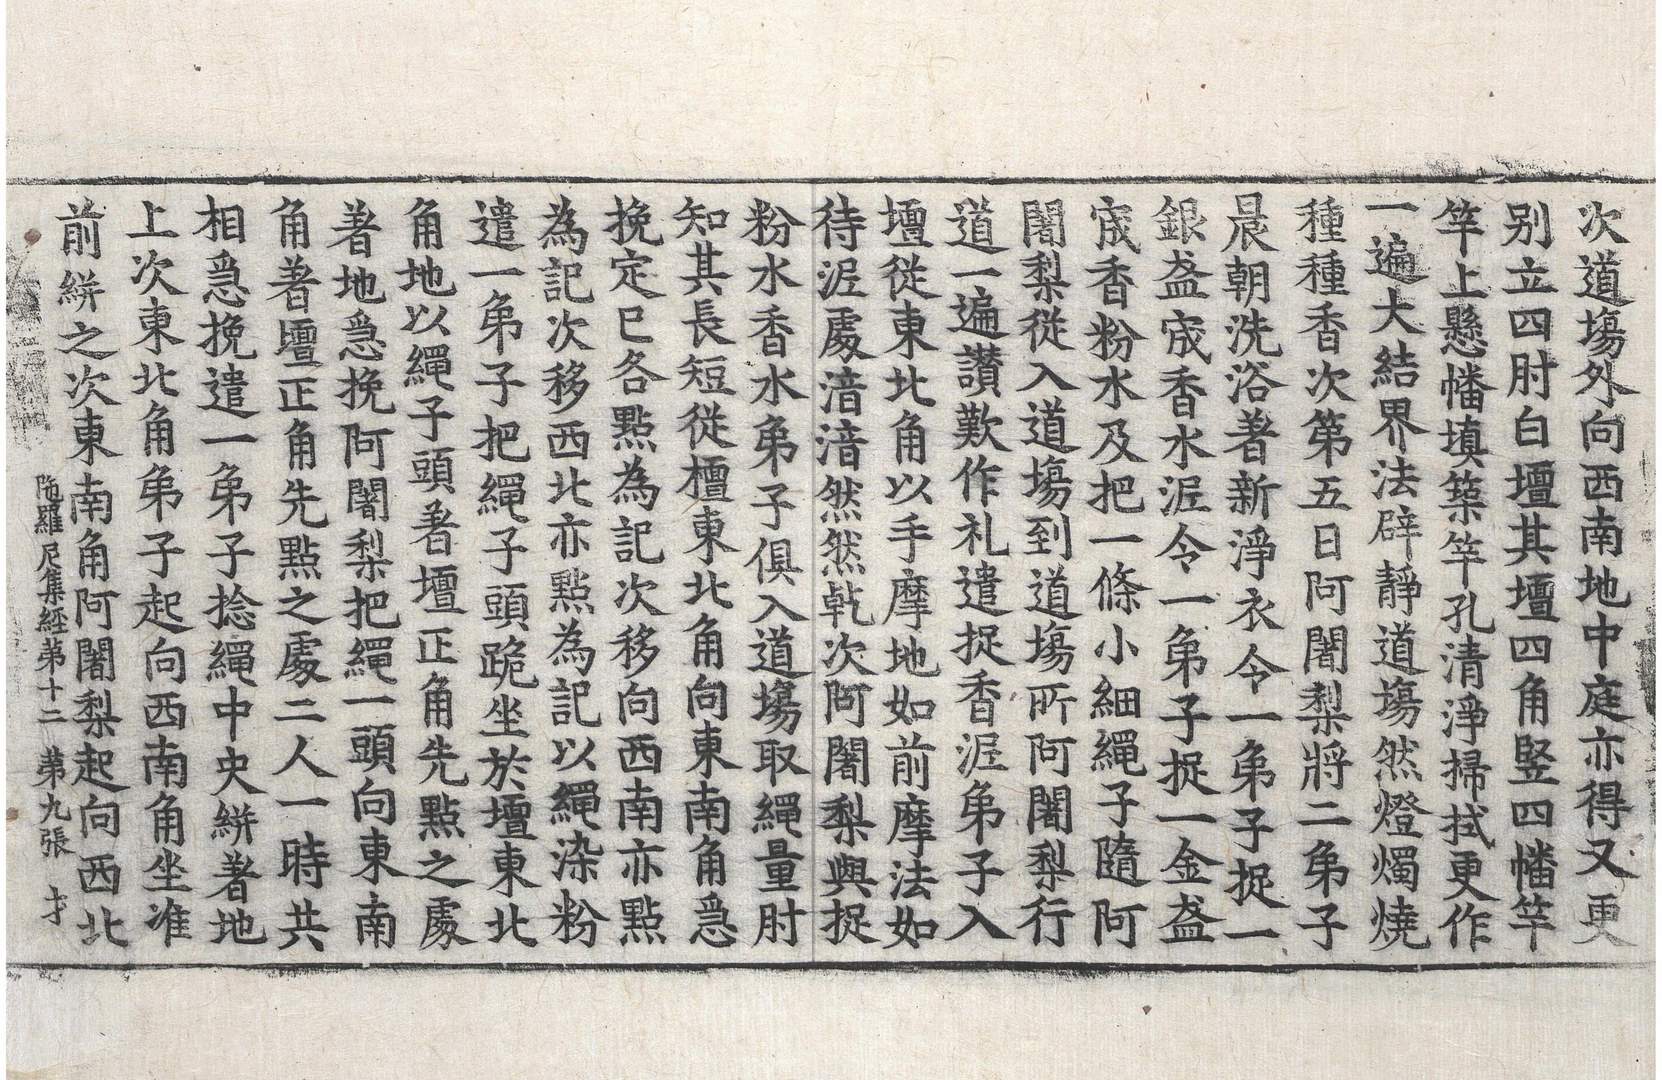 次道塲外向西南地中庭亦得又更
别立四肘白壇其壇四角竪四幡竿
竿上懸幡填築竿孔清淨掃拭更作
一遍大結界法辟靜道塲然燈燭燒
種種香次第五日阿闍梨將二弟子
晨朝洗浴著新淨衣令一弟子捉一
銀盞宬香水泥令一弟子捉一金盞
宬香粉水及把一條小細繩子隨阿
闍梨從入道塲到道塲所阿闍梨行
道一遍讃歎作礼遣捉香泥弟子入
壇從東北角以手摩地如前摩法如
待泥處湆湆然然乹次阿闍梨與捉
粉水香水弟子俱入道塲取繩量肘
知其長短從檀東北角向東南角急
挽定已各點為記次移向西南亦點
為記次移西北亦點為記以繩染粉
遣一弟子把繩子頭跪坐於壇東北
角地以繩子頭著壇正角先點之處
著地急挽阿闍梨把繩一頭向東南
角著壇正角先點之處二人一時共
相急挽遣一弟子捻繩中央絣著地
上次東北角弟子起向西南角坐准
前絣之次東南角阿闍梨起向西北
陁羅尼集經苐十二　苐九張　才